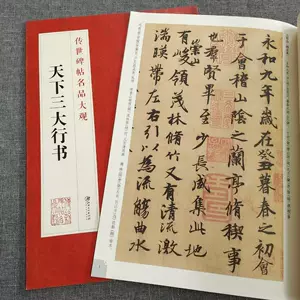 传世碑帖名品大观
天下三大行书
永和九年歲在癸丑暮春之初會
于會稽山陰之蘭亭脩稧事
也群賢畢至少長咸集此地
有崇山峻領茂林脩竹又有清流激
湍暎帶左右引以為流觴曲水